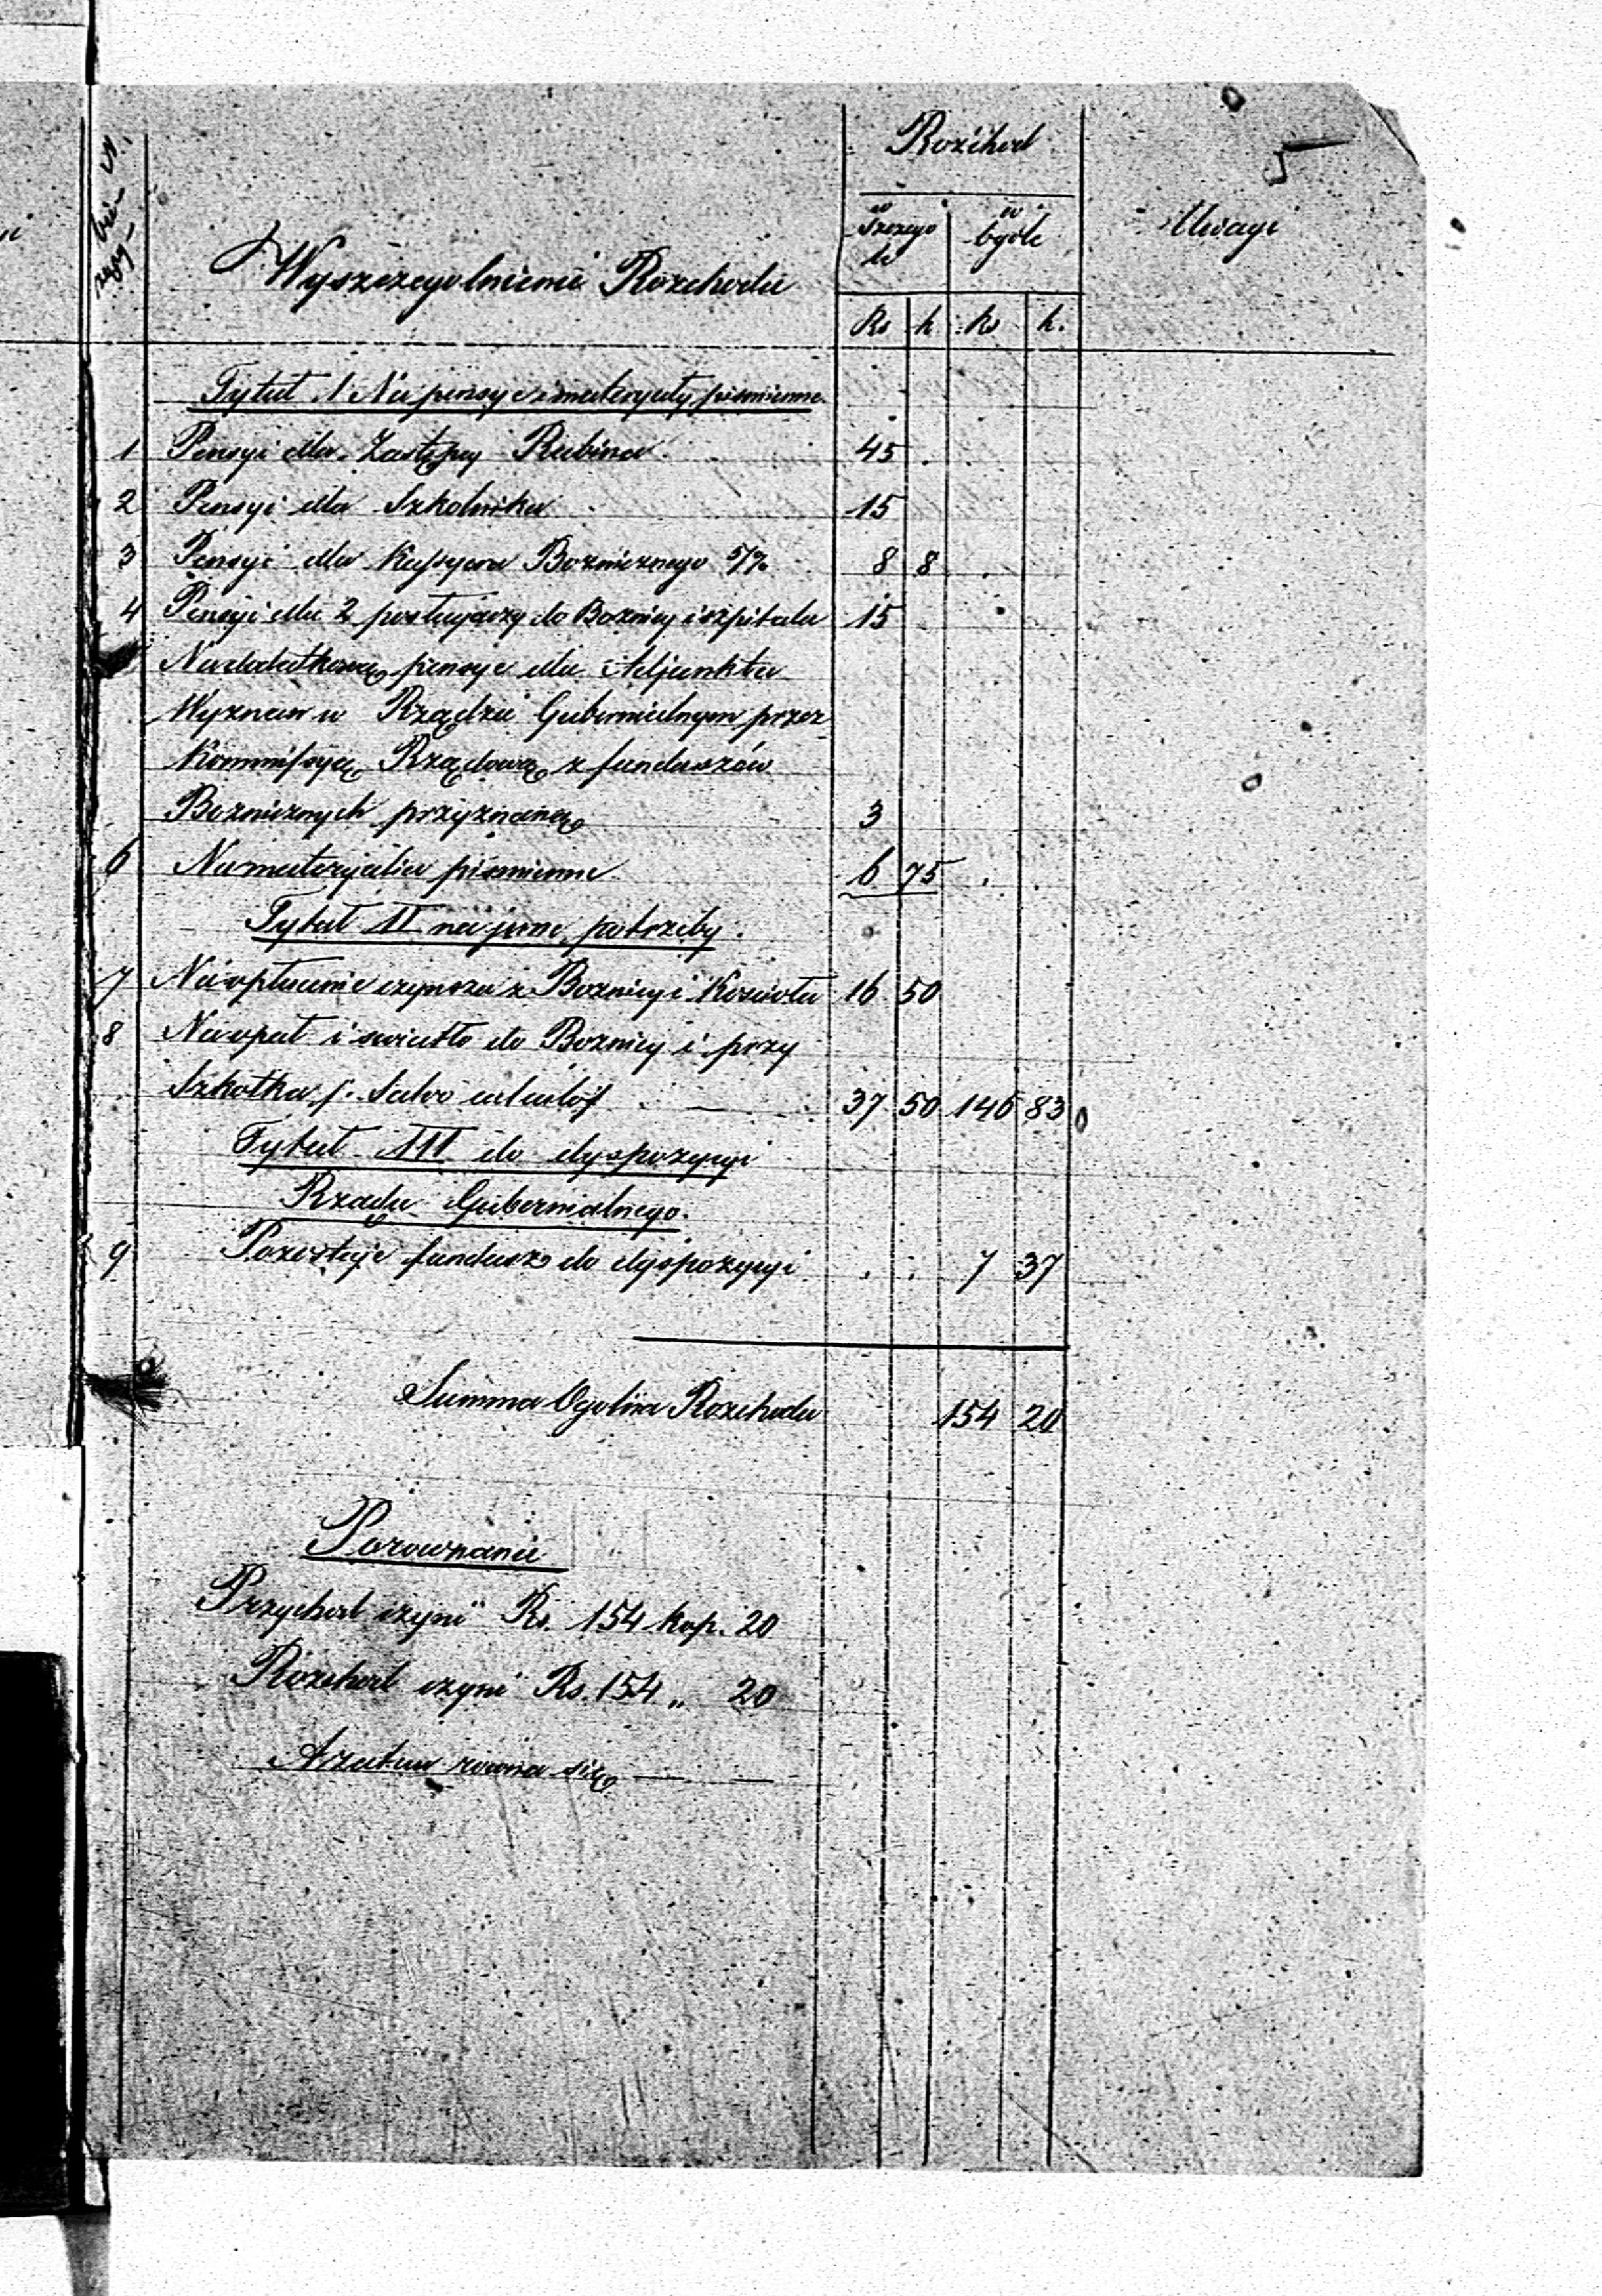 5
N. bie-
zący-
Wyszczegolnienie Rozchodu
Rozchod
w Szczegó
le
w
ogóle
Uwagi
Rs k Rs k.
Tytuł I Na pensye i materyały pismienne
1 Pensyi dla Zastępcy Rabina 45
2 Pensyi dla Szkolnika 15
3 Pensyi dla Kassyera Boznicznego 5/% 8 8
4 Pensyi dla 2 posługaczy do Boznicy i szpitala 15
Na dodatkową pensye dla Adjunkta
Wyznan w Rządzie Gubernialnym przez
Kommissyą Rządową z funduszów
Boznicznych przyznaną 3
6 Na materyalia pismienne 6 75
Tytuł II na inne potrzeby.
7 Na opłacenie czynszu z Boznicy i Koscioła 16 50
8 Na opał i swiatło do Boznicy i przy
Szkołka 37 50 146 83
Tytuł III do dyspozycyi
Rządu Gubernialnego.
9 Pozostaje fundusz do dyspozycyi 7 37
Summa Ogolna Rozchodu 154 20
Porownanie
Przychod czyni Rs. 154 kop. 20
Rozchod czyni Rs. 154 „ 20
A zatem rowna się — —